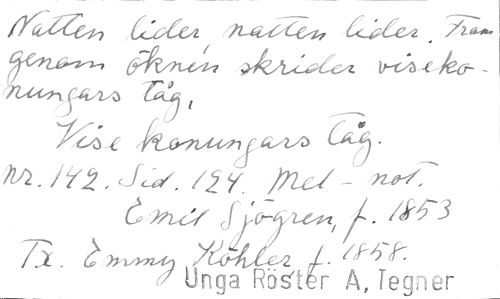 Natten lider, natten lider. Fram
genom öknen skrider viseko-
nungars tåg,
Vise konungars tåg.
Nr. 142. Sid. 124. Mel - not.
Emil Sjögren, f. 1853
Tx. Emmy Köhler f. 1858.
Unga Röster A, Tegner